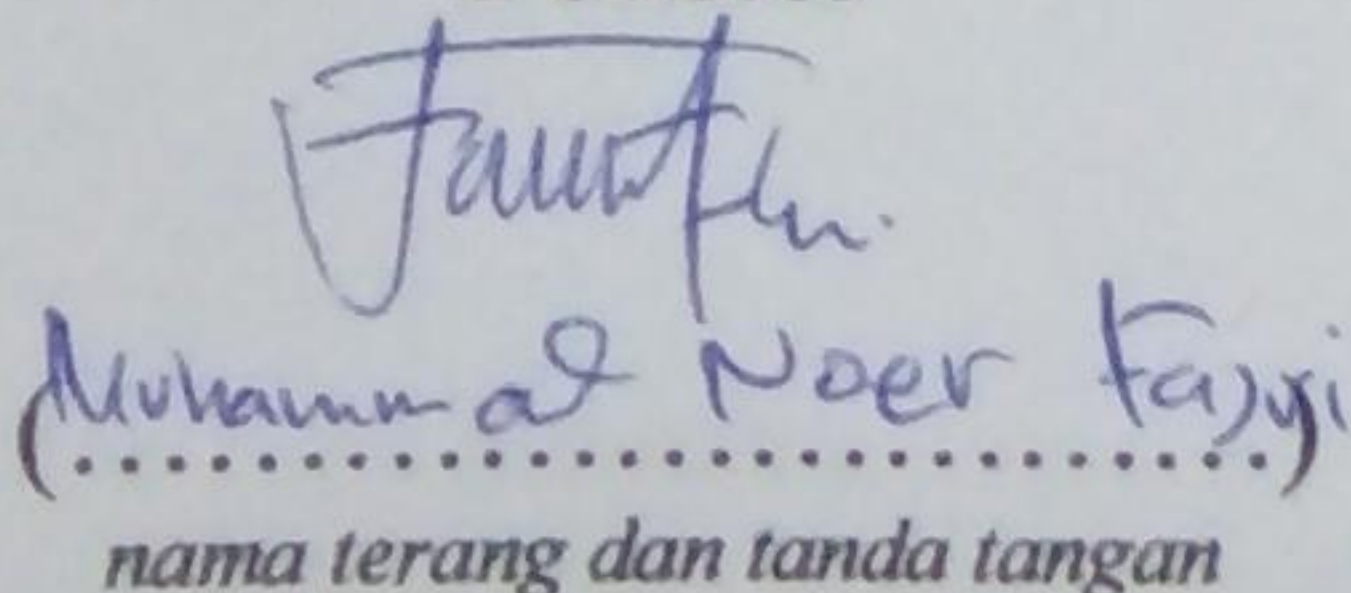 (Muhammad Noer Fajri)
nama terang dan tanda tangan